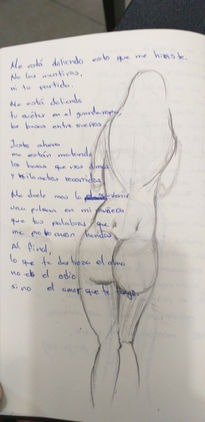 Me está doliendo esto que me hiciste.
No las mentiras,
ni tu partida.
Me está doliendo
tu en el guardarropa,
los besos entre sueños.
Justo ahora
me están matando
las horas que nos dimos
y kilometros recorridos
Me duele mas la
una pulsera en mi muñeca
que tus palabras que
me
Al final,
lo que te destroza el alma
no es el odio
sino el amor que te